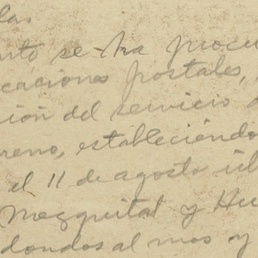 las
nto se ha procu
caciones postales,
ión del servicio d
reno, estableciéndo
el 11 de agosto últ
Mezquital y Hu
dondos al mes y